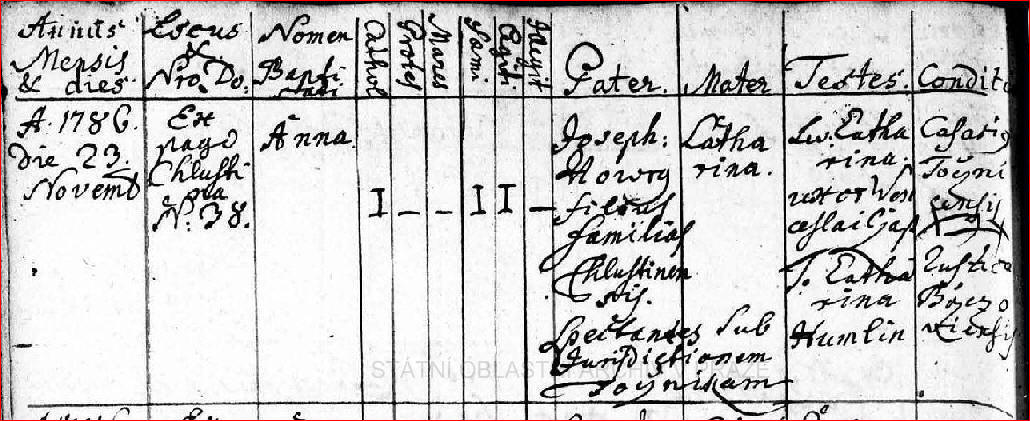 Annus Mensis & dies
Locus & Nro. Do:
Nomen Bapti zati
Cathol
Protes
Mares
Fœmi.
Legit:
Illegit
Pater.
Mater
Testes.
Condit
A. 1786.
Die 23.
Novemb
Ex
pago
Chlusti
na
N. 38.
Anna.
I
–
–
I
I
–
Joseph:
Nowy
filius
familias
Chlustinen
sis.
Spectantes sub
Jurisdictionem
Točnikam
Catha
rina.
Lev. Catha
rina.
uxor Wen
ceslai
T. Catha
rina
Humlin
Casarij
Točni
censis
rustica